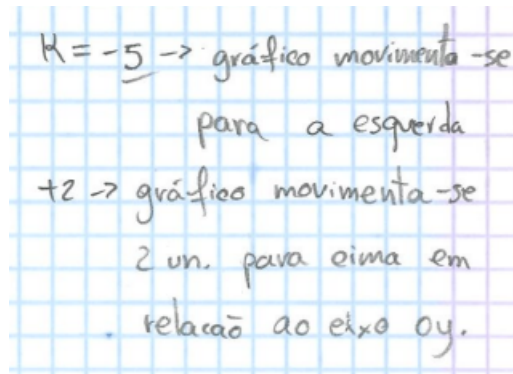 K = -5 -> gráfico movimenta-se
para a esquerda
+2 -> gráfico movimenta-se
2 un. para cima em
relacaõ ao eixo oy.